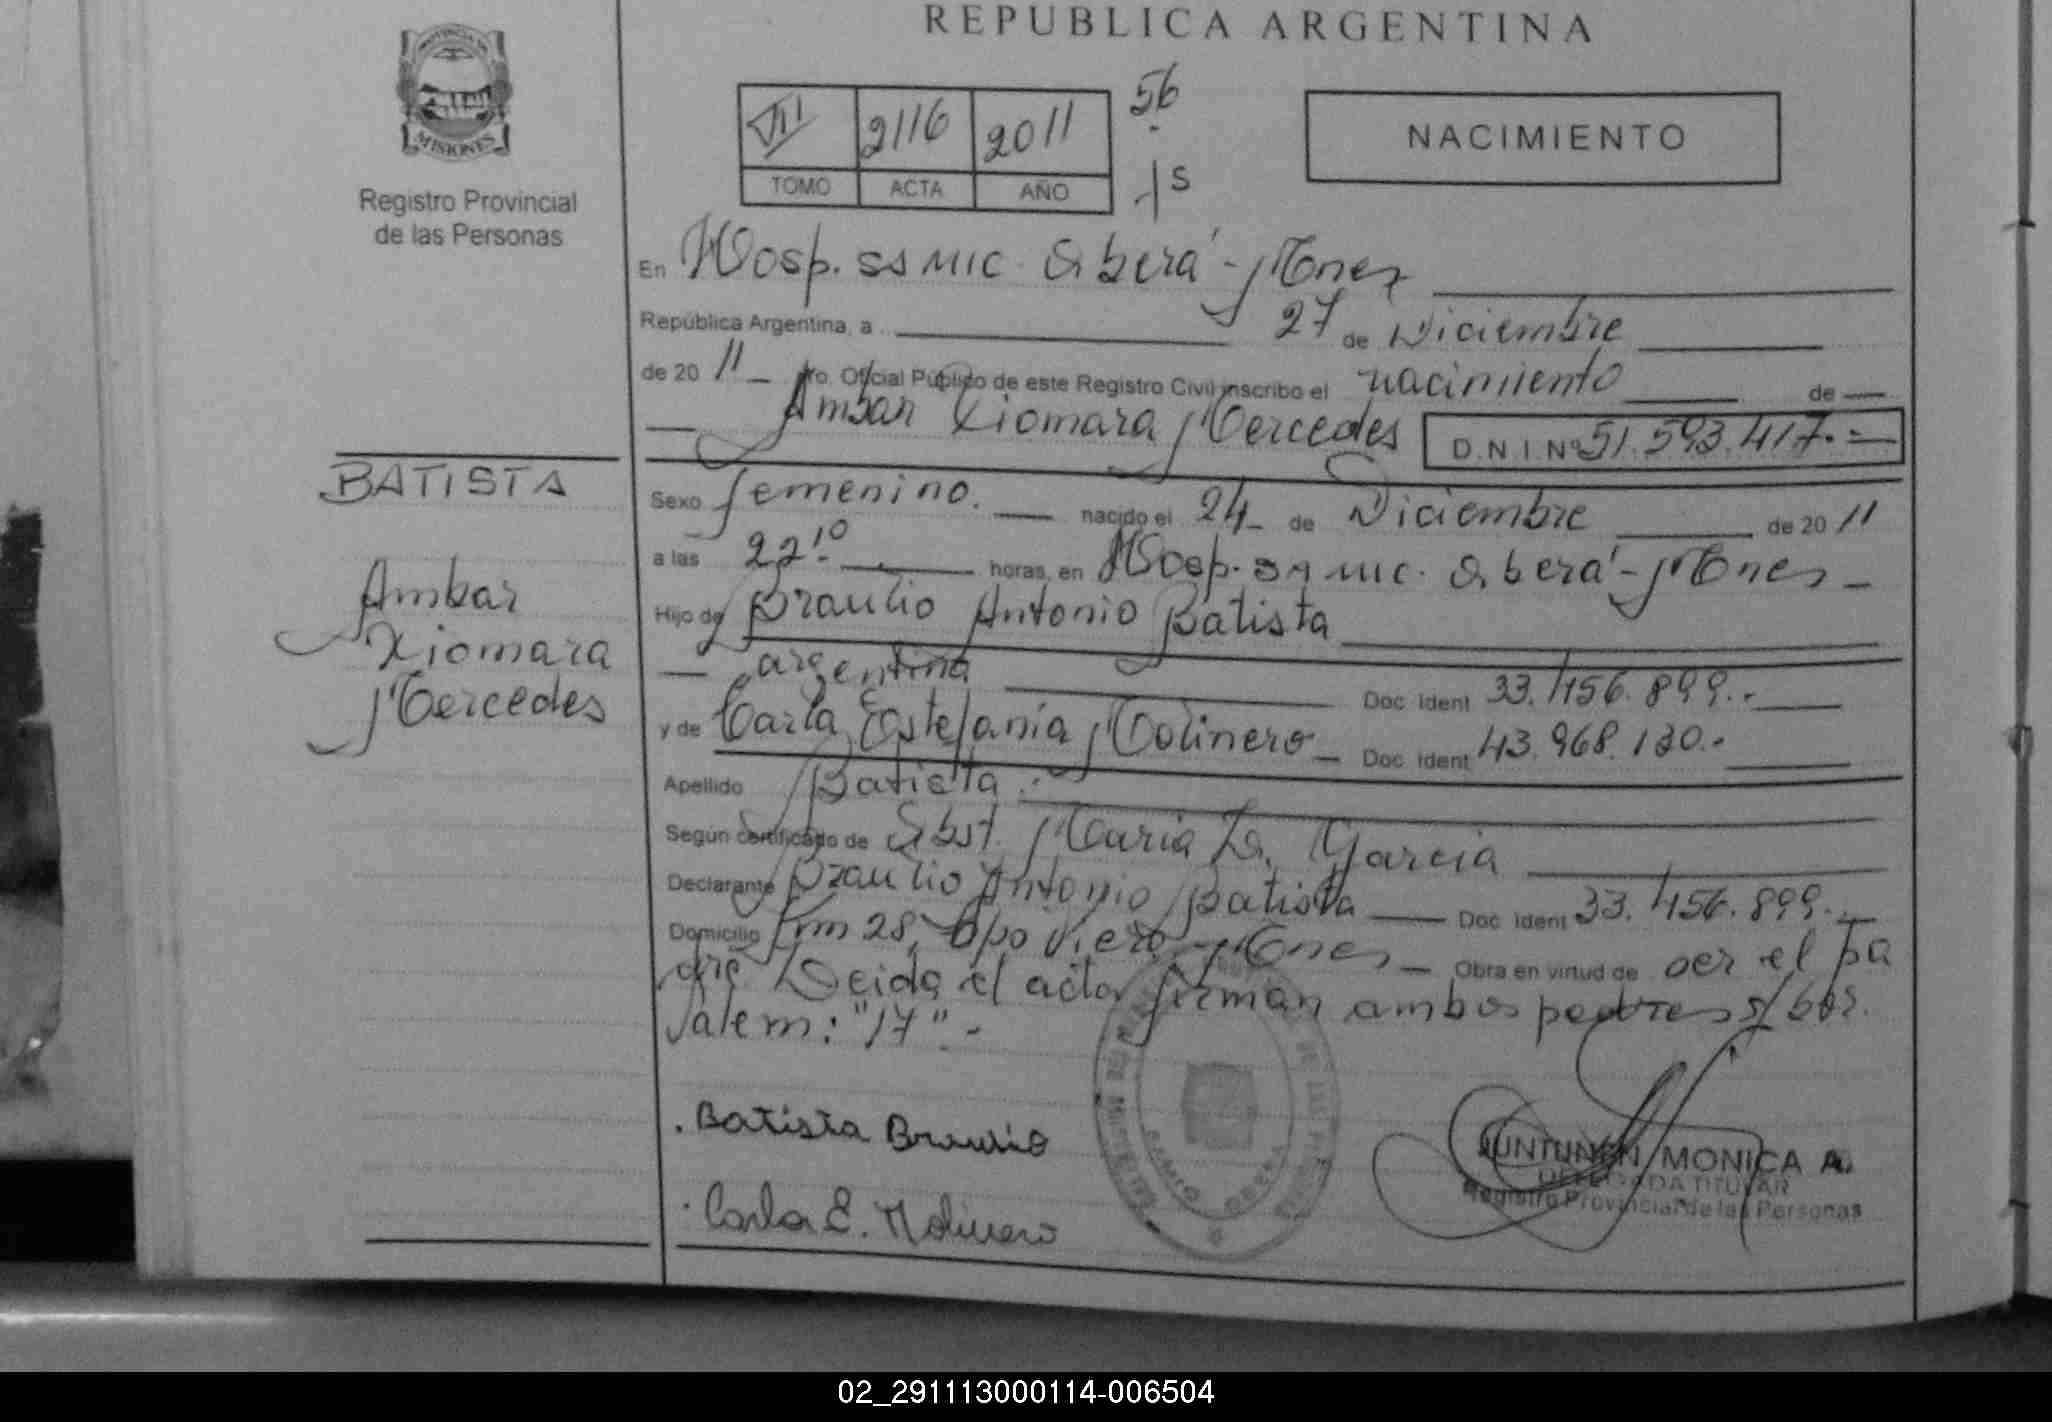 REPUBLICA ARGENTINA
PROVINCIA DE
MISIONES
Registro Provincial
de las Personas
VII 2116 2011
TOMO ACTA AÑO
56
NACIMIENTO
En Hosp. SAMIC. Oberá - Mnes
República Argentina, a 27 de Diciembre
de 20 11 Yo, Oficial Público de este Registro Civil inscribo el nacimiento de
Ambar Xiomara Mercedes D.N.I.Nº 51.593.417.-
BATISTA
Ambar
Xiomara
Mercedes
Sexo femenino. nacido el 24 de Diciembre de 20 11
a las 22,10 horas, en Hosp. SAMIC. Oberá - Mnes
Hijo de Braulio Antonio Batista
argentina Doc Ident 33.456.899.-
y de Carla Estefania Molinero Doc Ident 43.968.130.-
Apellido Batista.-
Según certificado de Obst. Maria D. Garcia
Declarante Braulio Antonio Batista Doc Ident 33.456.899.-
Domicilio Km 28, Cpo Viera - Mnes Obra en virtud de ser el pa
dre. Leida el acta firman ambos padres s/bor.
Valem: "17".-
Batista Braulio
Carla E. Molinero
JUNTUNEN, MONICA A.
DELEGADA TITULAR
Registro Provincial de las Personas
02_291113000114-006504